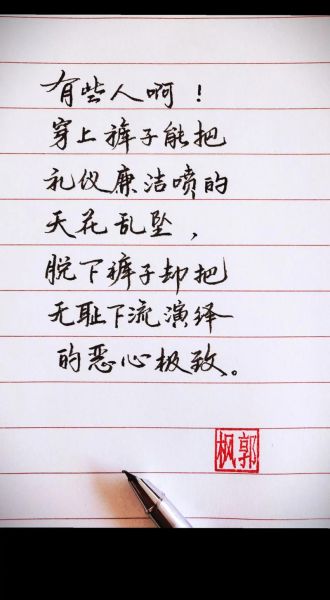 有些人啊！
穿上裤子能把
礼仪廉洁喷的
天花乱坠，
脱下裤子却把
无耻下流演绎
的恶心极致。
枫郭